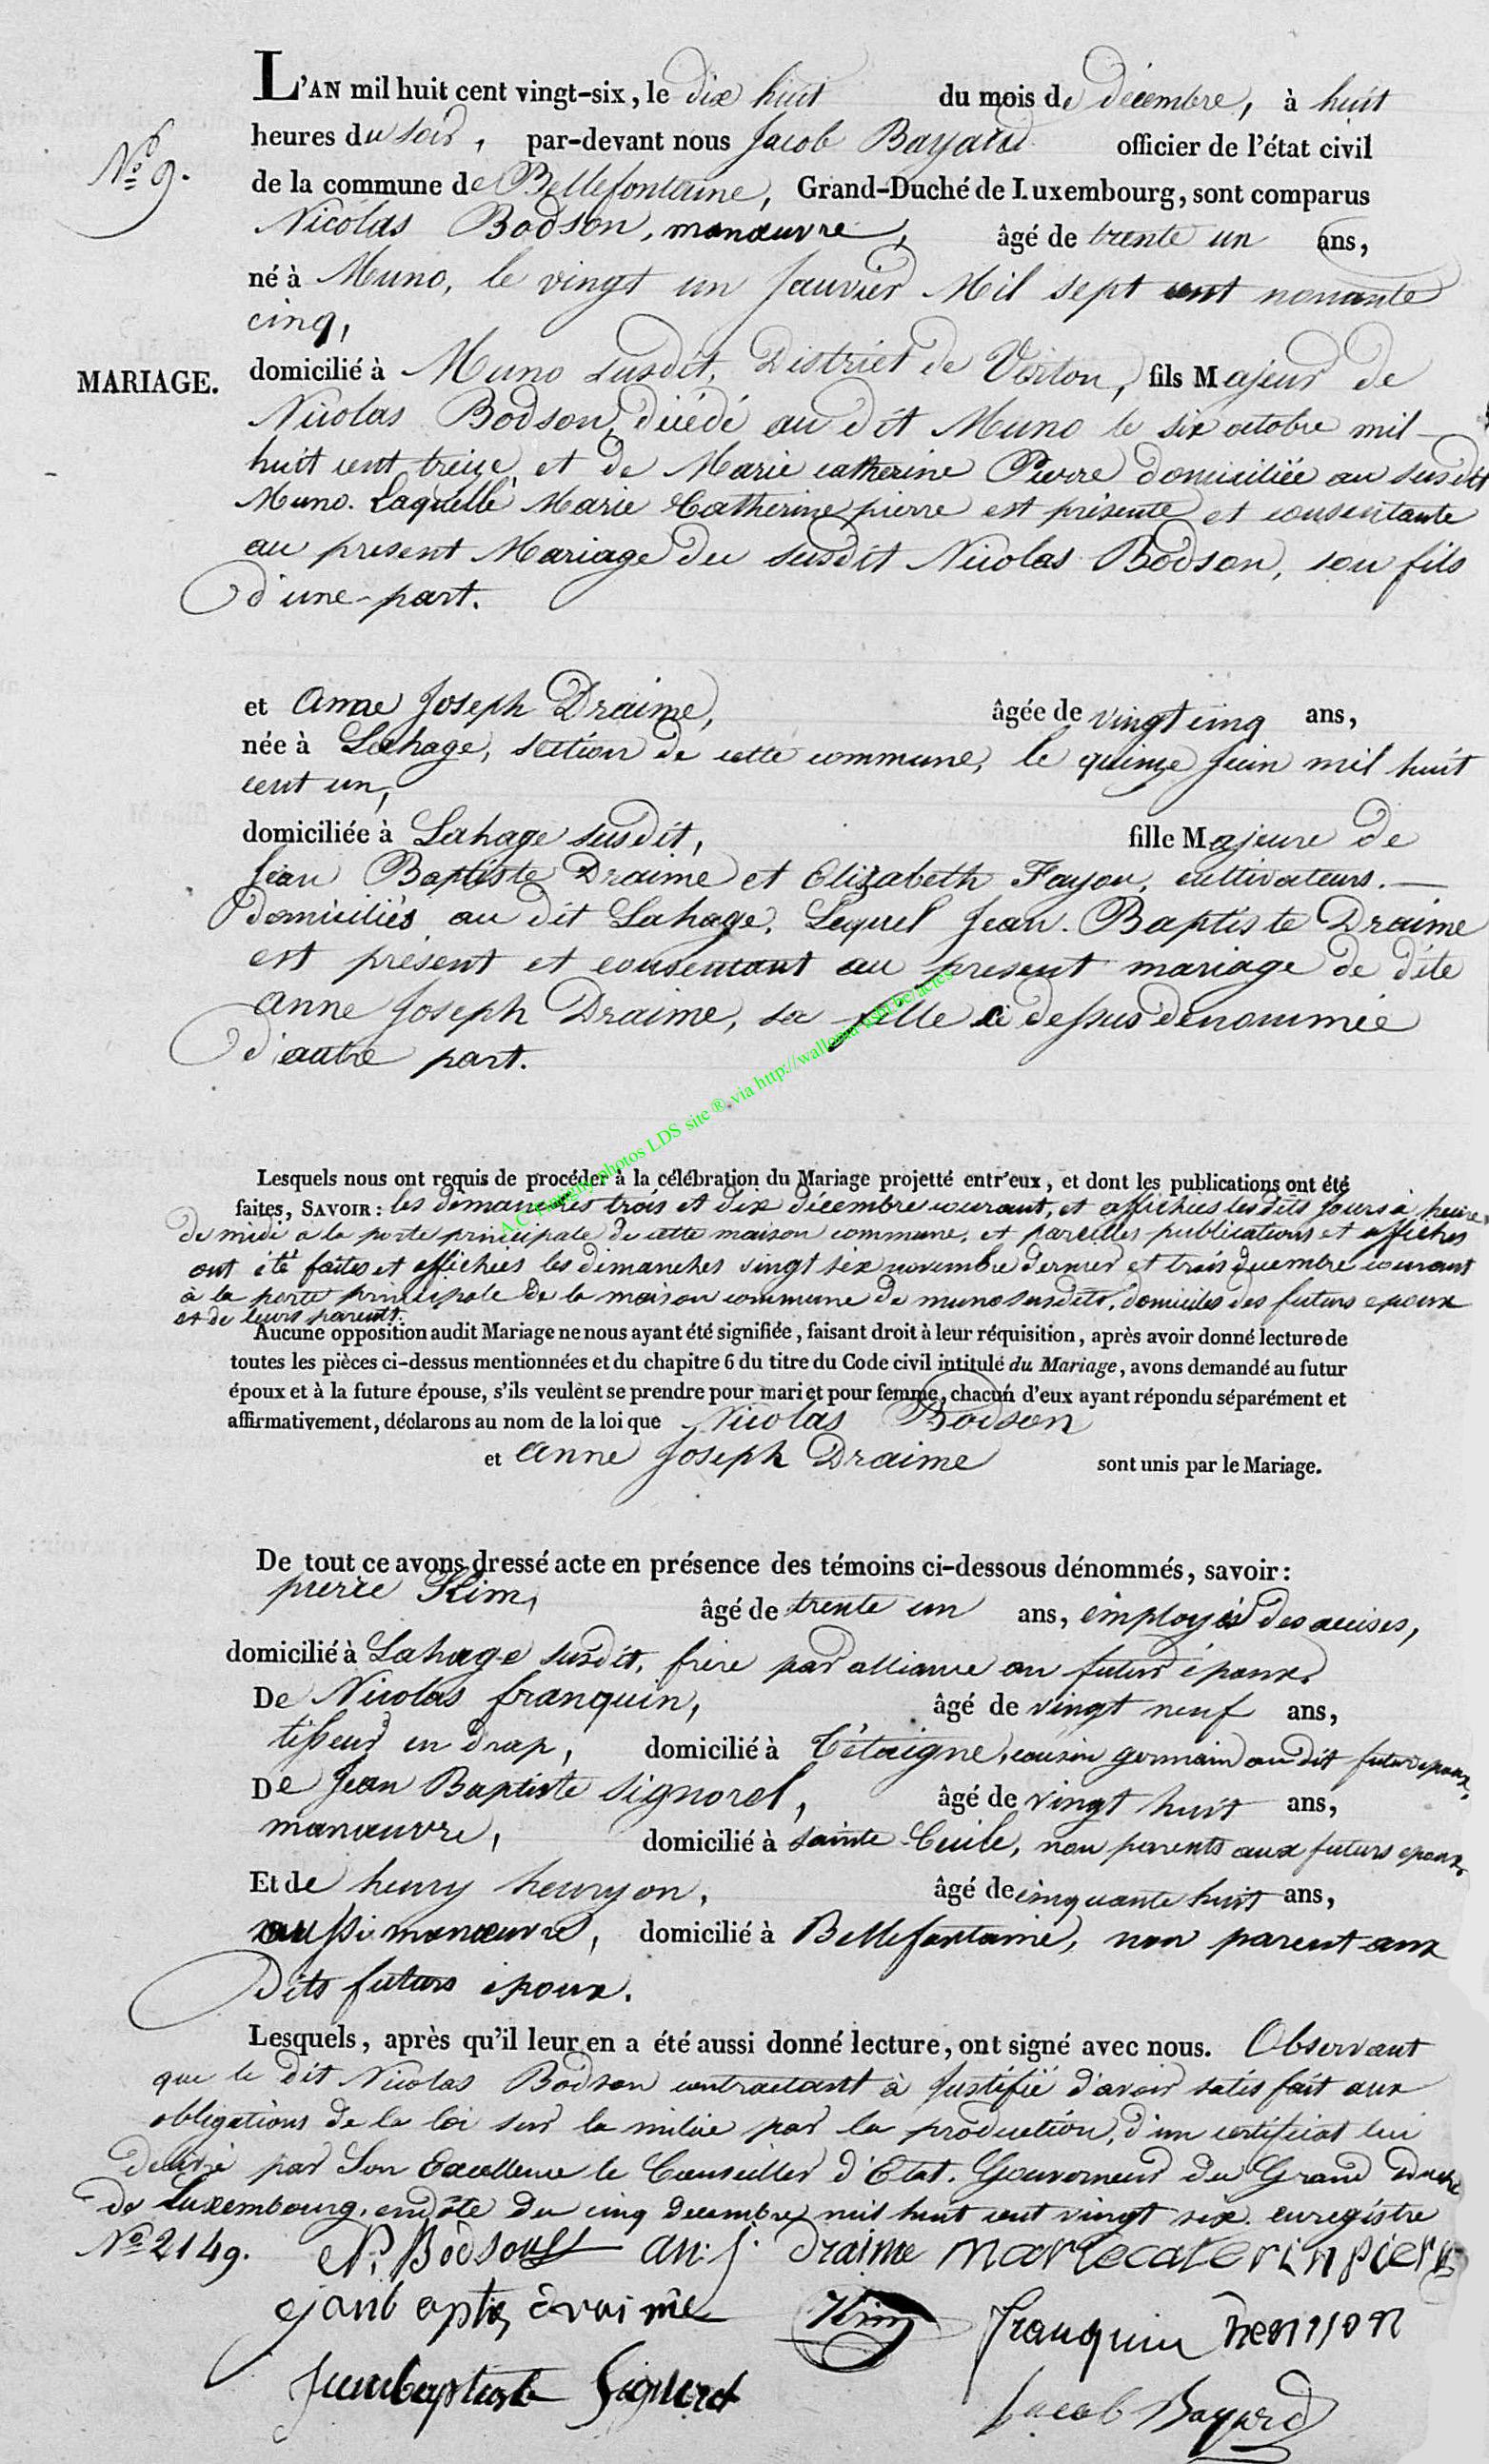 L'AN mil huit cent vingt-six, le dix huit du mois de décembre, à huit
heures du soir, par-devant nous Jacob Bayard officier de l'état civil
N° 9.
de la commune de Bellefontaine, Grand-Duché de Luxembourg, sont comparus
Nicolas Bodson, manœuvre, âgé de trente un ans,
né à Muno, le vingt un Janvier Mil sept cent nonante
cinq,
MARIAGE.
domicilié à Muno susdit, District de Virton, fils Majeur de
Nicolas Bodson, décédé au dit Muno le six octobre mil
huit cent treize et de Marie catherine Pierre domiciliée au susdit
Muno. Laquelle Marie Catherine pierre est présente et consentante
au present Mariage du susdit Nicolas Bodson, son fils
d'une part.
et Anne Joseph Draime, âgée de vingt cinq ans,
née à Lahage, section de cette commune, le quinze Juin mil huit
cent un,
domiciliée à Lahage susdit, fille Majeure de
Jean Baptiste Draime et Elizabeth Fayon, cultivateurs.
domiciliés au dit Lahage. Lequel Jean-Baptiste Draime
est présent et consentant au present mariage de dite
anne Joseph Draime, sa fille ci dessus dénommée
d'autre part.
A.C. Tintigny photos LDS site ® via http://wallonia-asbl.be/actes
Lesquels nous ont requis de procéder à la célébration du Mariage projetté entr'eux, et dont les publications ont été
faites, SAVOIR : les dimanches trois et dix décembre courant, et affichées les dits jours à heure
de midi a la porte principale de cette maison commune, et pareilles publications et affiches
ont été faites et affichées les dimanches vingt six novembre dernier et trois décembre courant
a la porte principale de la maison commune de muno susdits, domiciles des futurs epoux
et de leurs parents.
Aucune opposition audit Mariage ne nous ayant été signifiée, faisant droit à leur réquisition, après avoir donné lecture de
toutes les pièces ci-dessus mentionnées et du chapitre 6 du titre du Code civil intitulé du Mariage, avons demandé au futur
époux et à la future épouse, s'ils veulent se prendre pour mari et pour femme, chacun d'eux ayant répondu séparément et
affirmativement, déclarons au nom de la loi que Nicolas Bodson
et anne Joseph Draime sont unis par le Mariage.
De tout ce avons dressé acte en présence des témoins ci-dessous dénommés, savoir :
pierre Kim, âgé de trente un ans, employé des accises,
domicilié à Lahage susdit, frère par alliance au futur époux.
De Nicolas franquin, âgé de vingt neuf ans,
tisseur en drap, domicilié à Tétaigne, cousin germain au dit futur epoux,
De Jean Baptiste Signorel, âgé de vingt huit ans,
manœuvre, domicilié à Sainte Cécile, non parents aux futurs epoux.
Et de henry henryon, âgé de cinquante huit ans,
aussi manœuvre, domicilié à Bellefontaine, non parent aux
dits futurs époux.
Lesquels, après qu'il leur en a été aussi donné lecture, ont signé avec nous. Observant
que le dit Nicolas Bodson contractant à Justifié d'avoir satisfait aux
obligations de la loi sur la milice par la production, d'un certificat lui
délivré par Son Excellence le Conseiller d'Etat. Gouverneur du Grand Duché
de Luxembourg, en date du cinq decembre mil huit cent vingt six. enregistré
N° 2149. N. Bodson an: j. Draime mariecaterinpierr
janb aptis draime Kim franquin henrion
Jeanbaptiste Signorel Jacob Bayard